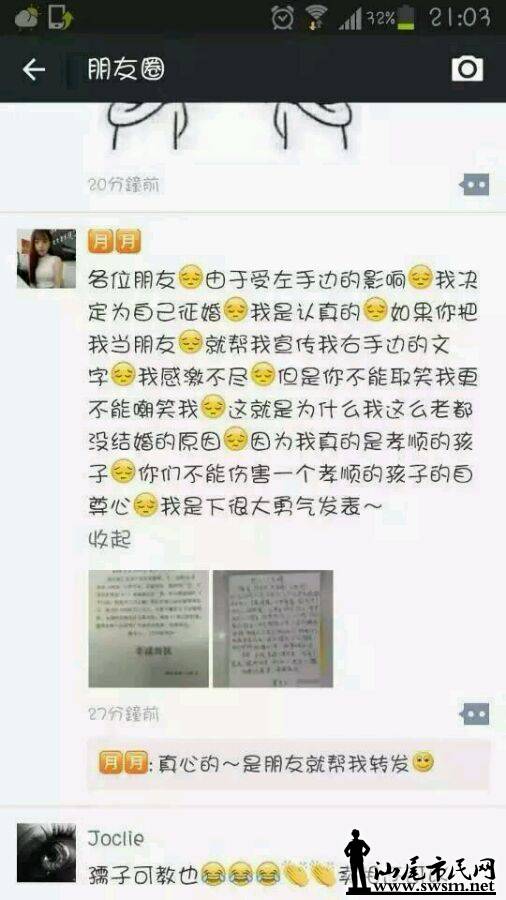 32% 21:03
朋友圈
20分鐘前
月月
各位朋友😔由于受左手边的影响😔我决
定为自己征婚😔我是认真的😔如果你把
我当朋友😔就帮我宣传我右手边的文
字😔我感激不尽😔但是你不能取笑我更
不能嘲笑我😔这就是为什么我这么老都
没结婚的原因😔因为我真的是孝顺的孩
子😔你们不能伤害一个孝顺的孩子的自
尊心😔我是下很大勇气发表～
收起
27分鐘前
月月:真心的～是朋友就帮我转发🙂
Joclie
孺子可教也😂😂😂👏👏
汕尾市民网
www.swsm.net